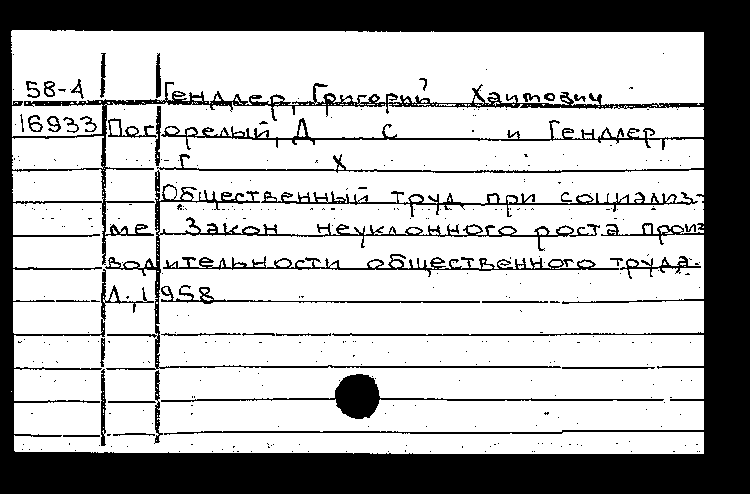 58-4 Гендлер, Григорий Хаимович
16933 Погорелый, Д С и Гендлер,
Г Х
Общественный труд при социализ-
ме. Закон неуклонного роста произ
водительности общественного труда.
Л., 1958